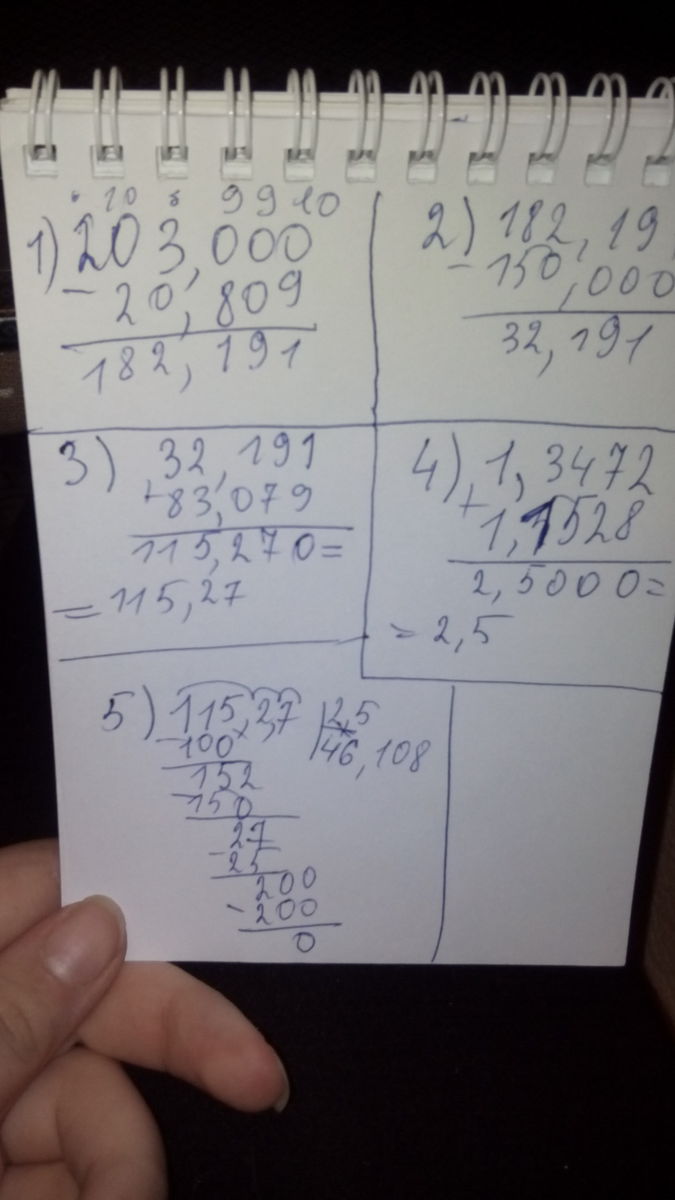 10 9 9 10
1) 203,000
- 20,809
182,191
2) 182,19
- 150,000
32,191
3) 32,191
+ 83,079
115,270=
= 115,27
4) 1,3472
+ 1,1528
2,5000=
= 2,5
5) 115,2,7 | 2,5
- 100 46,108
152
- 150
27
- 25
200
- 200
0